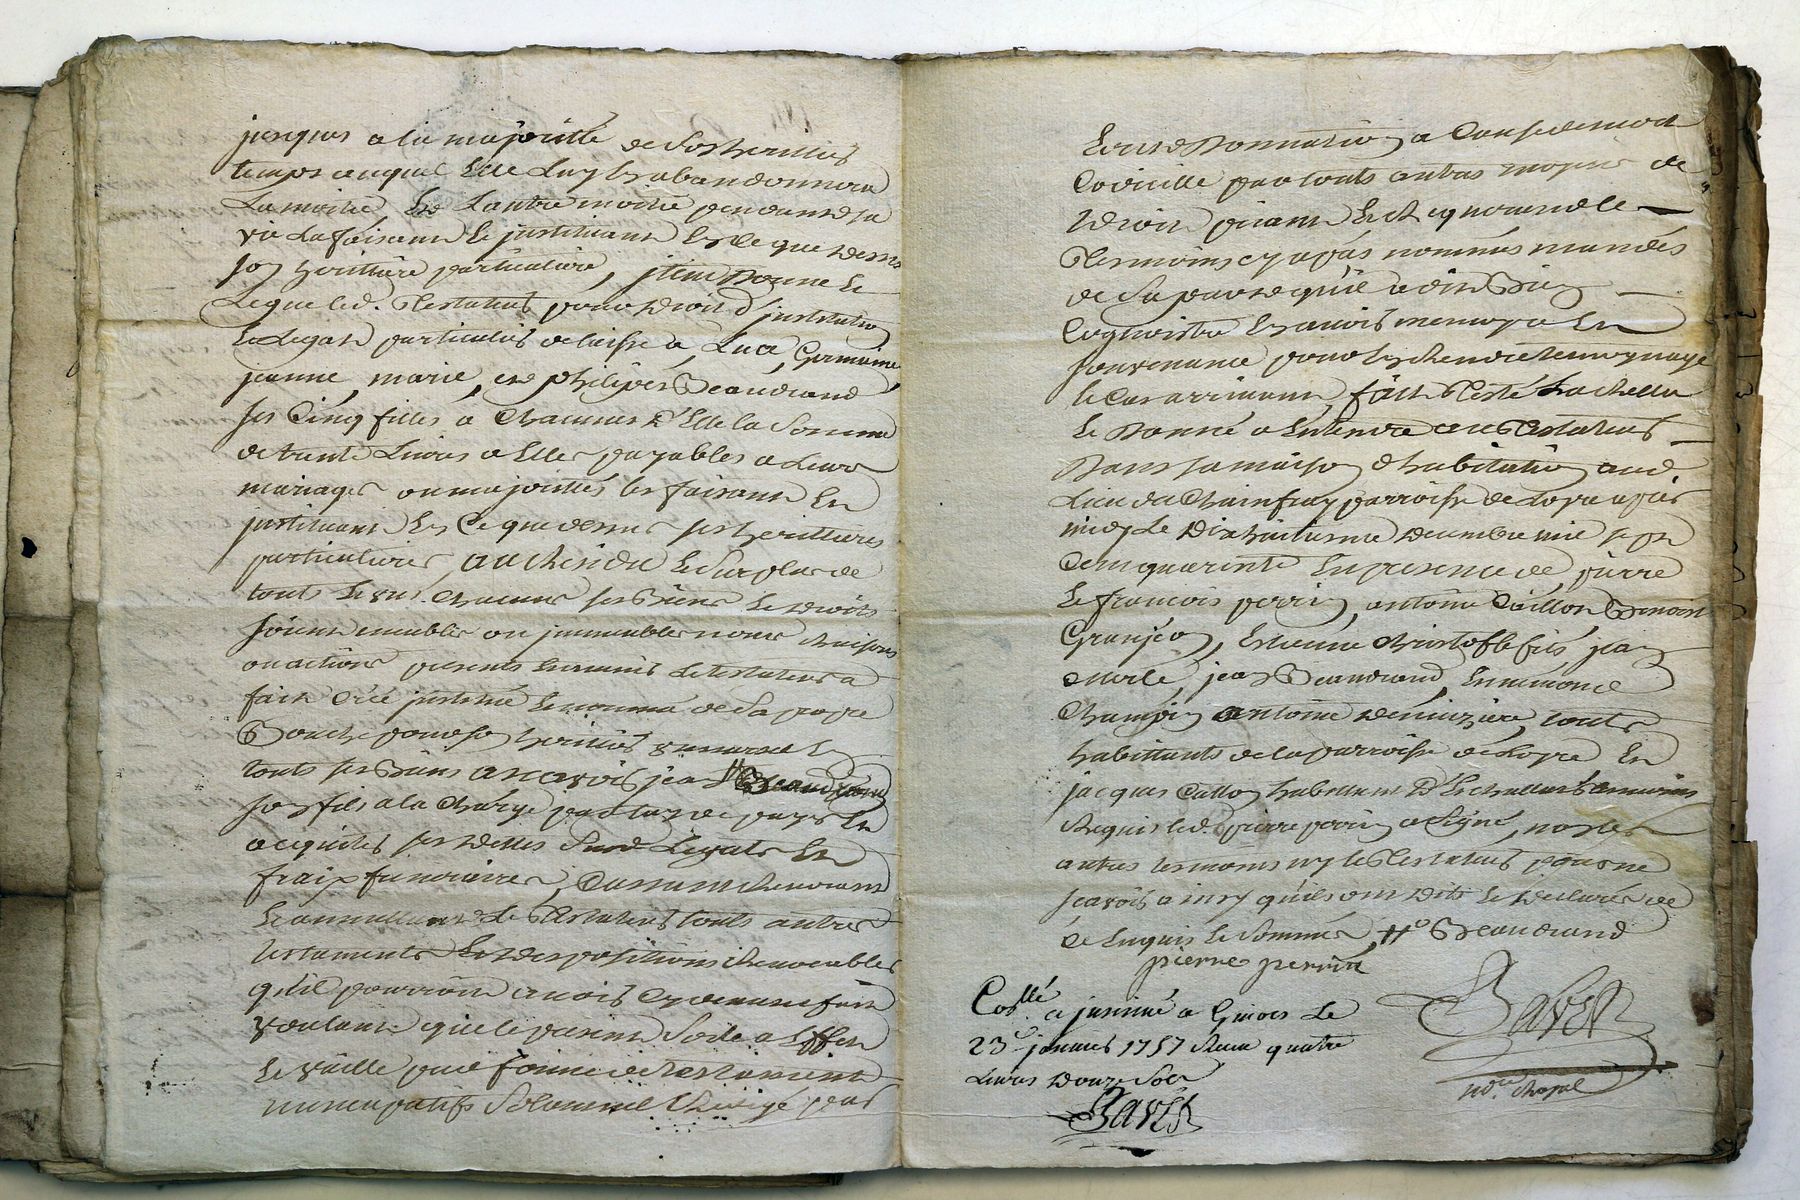 jusques a la majoritté de ses heritties
temps auquel Elle luy En abandonnera
La moitié, Et Lautre moitié pendant sa
vie La faisant Et justituant En Ce que dessus
son herittiere particuliere, jtem Donne Et
Legue led. Testateur pour droit d'justitution
Et Legat particulier delaisse a Luce, Germaine,
jeanne, marie, Et philiper Beaudrand
ses Cinq filles a Chacunes d'Elle la Somme
de trente Livres a Elles payables a Leurs
mariages ou majorittés les faisant Et
justituant En Ce que dessus ses heritieres
particulieres, au Residu Et Surplus de
touts Et uns Chacuns ses Biens Et droits
soient meubles ou jmmeubles noms Raisons
ou actions presents Et avenir Le testateur a
fait Créé justitué Et nommé de Sa propre
Bouche pour son heritier universel En
touts ses Biens a scavoir jean Beaudrand
son fils a la Charge par luy de payer Et
acquiter ses dettes Susd. Legats Et
fraix funeraires, Cassant Revocant
Et annullant Le Testateur touts autres
testaments Et dispositions Revocables
qu'il pourroit avoir Cy devant fait
voulant que le present Sorte a Effet
Et vaille par forme de Testament
nuncupatif Solemnel Redigé par
Ecrit Donnation a Cause de mort
Codicille par touts autres moyens de
droit priant Et Requerant le
Tesmoins cy apres nommés mandés
de Sa part qu'il a dit Bien
Cognoistre En avoir memoyre Et
souvenance pour En Rendre temoignage
le Cas arrivant, fait Testé Rachellu
Et Donné a Entendre aud Testateur
Dans sa maison d'habitation aud
Lieu du Chainfray parroisse de Loyre apres
midy Le Dixhuitieme decembre mil sept
Cent quarente En presence de pierre
Et francois perrin, antoine Caillon Benoist
Granjeon, Estienne Christofle fils jean
, jean Beaudrand, Ennemond
Champin antoine demiziere, touts
habittants de la parroisse de Loyre Et
jacques Catton habittant d'Eschallas temoins
Requis led. pierre perrin a Signé, non les
autres temoins ny le Testateur pour ne
scavoir a insy qu'ils ont dits Et declarés de
de Enquis Et Sommés, #° Beaudrand
pierre perrin
Baver
nore. Royal
Collé. et jnsinué a Givors Le
23e. janvier 1757 Receu quatre
Livres douze Sols
Baver